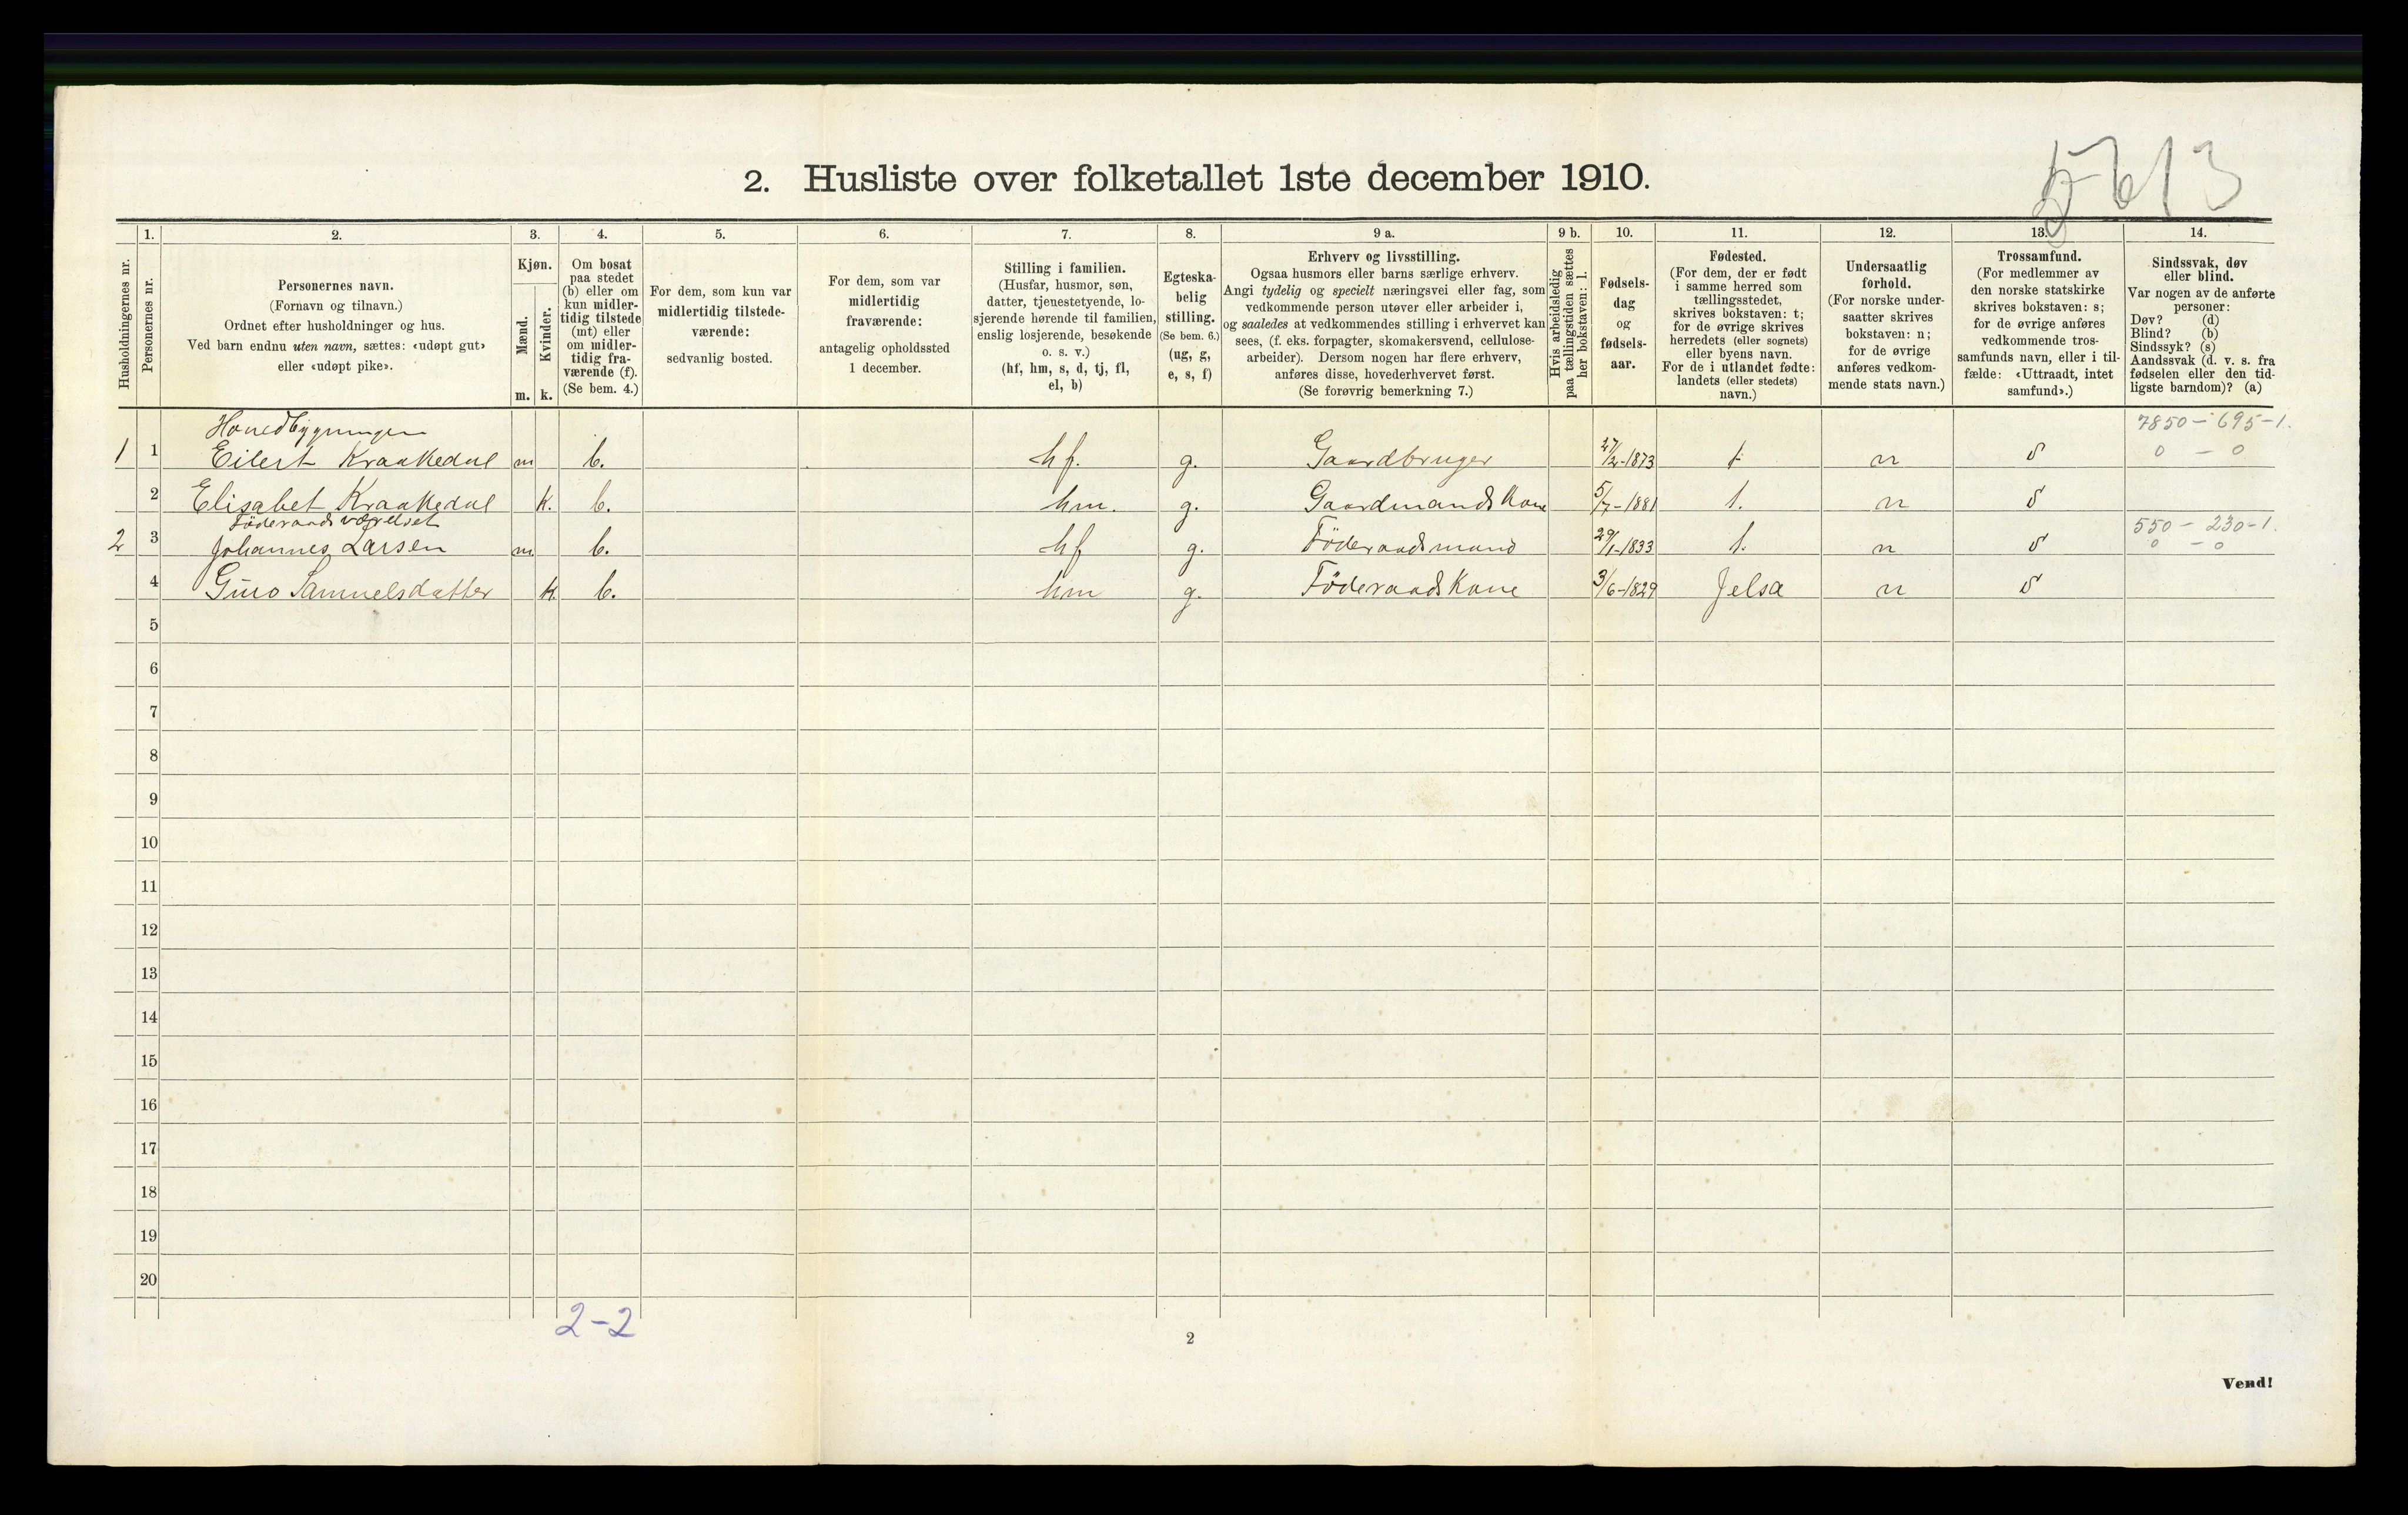 5613
2. Husliste over folketallet 1ste december 1910.
Husholdningernes nr.
1.
Personernes nr.
2.
Personernes navn.
(Fornavn og tilnavn.)
Ordnet efter husholdninger og hus.
Ved barn endnu uten navn, sættes: «udøpt gut»
eller «udøpt pike».
3.
Kjøn.
Mænd.
Kvinder.
m. k.
4.
Om bosat
paa stedet
(b) eller om
kun midler-
tidig tilstede
(mt) eller
om midler-
tidig fra-
værende (f).
(Se bem. 4.)
5.
For dem, som kun var
midlertidig tilstede-
værende:
sedvanlig bosted.
6.
For dem, som var
midlertidig
fraværende:
antagelig opholdssted
1 december.
7.
Stilling i familien.
(Husfar, husmor, søn,
datter, tjenestetyende, lo-
sjerende hørende til familien,
enslig losjerende, besøkende
o. s. v.)
(hf, hm, s, d, tj, fl,
el, b)
8.
Egteska-
belig
stilling.
(Se bem. 6.)
(ug, g,
e, s, f)
9 a.
Erhverv og livsstilling.
Ogsaa husmors eller barns særlige erhverv.
Angi tydelig og specielt næringsvei eller fag, som
vedkommende person utøver eller arbeider i,
og saaledes at vedkommendes stilling i erhvervet kan
sees, (f. eks. forpagter, skomakersvend, cellulose-
arbeider). Dersom nogen har flere erhverv,
anføres disse, hovederhvervet først.
(Se forøvrig bemerkning 7.)
9 b.
Hvis arbeidsledig
paa tællingstiden sættes
her bokstaven: l.
10.
Fødsels-
dag
og
fødsels-
aar.
11.
Fødested.
(For dem, der er født
i samme herred som
tællingsstedet,
skrives bokstaven: t;
for de øvrige skrives
herredets (eller sognets)
eller byens navn.
For de i utlandet fødte:
landets (eller stedets)
navn.)
12.
Undersaatlig
forhold.
(For norske under-
saatter skrives
bokstaven: n;
for de øvrige
anføres vedkom-
mende stats navn.)
13.
Trossamfund.
(For medlemmer av
den norske statskirke
skrives bokstaven: s;
for de øvrige anføres
vedkommende tros-
samfunds navn, eller i til-
fælde: «Uttraadt, intet
samfund».)
14.
Sindssvak, døv
eller blind.
Var nogen av de anførte
personer:
Døv? (d)
Blind? (b)
Sindssyk? (s)
Aandssvak (d. v. s. fra
fødselen eller den tid-
ligste barndom)? (a)
Hovedbygningen 7850 - 695-1.
1 1 Eilert Kraakedal m b. hf. g. Gaardbruger 27/2-1873 t n s 0 - 0
2 Elisabet Kraakedal k. b. hm. g. Gaardmandskone 5/7-1881 t. n s
Föderaadsværelset 550 - 230-1.
2 3 Johannes Larsen m b. hf g. Föderaadsmand 29/1-1833 t. n s 0 - 0
4 Guro Samuelsdatter k. b. hm g. Föderaadskone 3/6-1829 Jelsa n s
5
6
7
8
9
10
11
12
13
14
15
16
17
18
19
20
2-2
2
Vend!